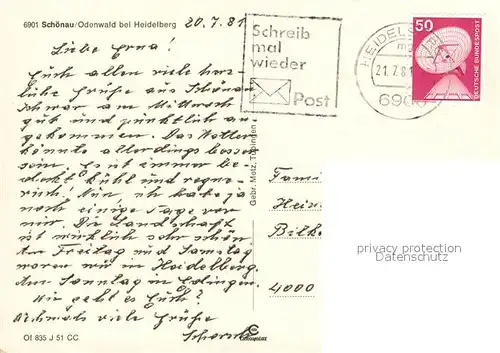 6901 Schönau/Odenwald bei Heidelberg
20.7.81
Schreib
mal
wieder
Post
HEIDELB
21.7.8
6900
50
DEUTSCHE BUNDESPOST
Liebe Erna!
Euch allen viele herz-
liche Grüße aus Schönau
am Mittwoch
gut und pünktlich an-
gekommen. Das Wetter
könnte allerdings besser
sein. Es ist immer be-
deckt kühl und regne-
risch! Nun, ich habe ja
noch einige Tage vor
mir. Die Landschaft
ist wirklich sehr schön.
Am Freitag und Samstag
waren wir in Heidelberg.
Am Sonntag in
Wie geht es Euch?
Nochmals viele Grüße
Gebr. Metz, Tübingen
Fami
Hein
Bilk
4000
privacy protection
Datenschutz
Of 835 J 51 CC